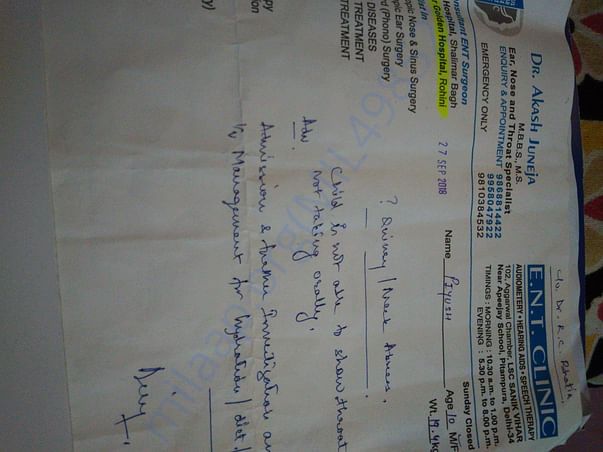 c/o Dr. R.C.
Dr. Akash Juneja
M.B.B.S., M.S.
Ear, Nose and Throat Specialist
ENQUIRY & APPOINTMENT 9868814422
9958047922
EMERGENCY ONLY 9810384532
E.N.T. CLINIC
AUDIOMETERY • HEARING AIDS • SPEECH THERAPY
102, Aggarwal Chamber, LSC SANIK VIHAR
Near Apeejay School, Pitampura, Delhi-34
TIMINGS : MORNING : 10.30 a.m. to 1.00 p.m.
EVENING : 5.30 p.m. to 8.00 p.m.
Sunday Closed
onsultant ENT Surgeon
Hospital, Shalimar Bagh
Golden Hospital, Rohini
opic Nose & Sinus Surgery
opic Ear Surgery
(Phono) Surgery
DISEASES
TREATMENT
TREATMENT
27 SEP 2018
Name Piyush Age 10 M/F
Wt. 19.4kg
? Quinsy / Neck Abscess.
Child is not able to show throat
not taking orally.
Adv.
Admission & further Investigation an
Management for hydration / diet /
milaap